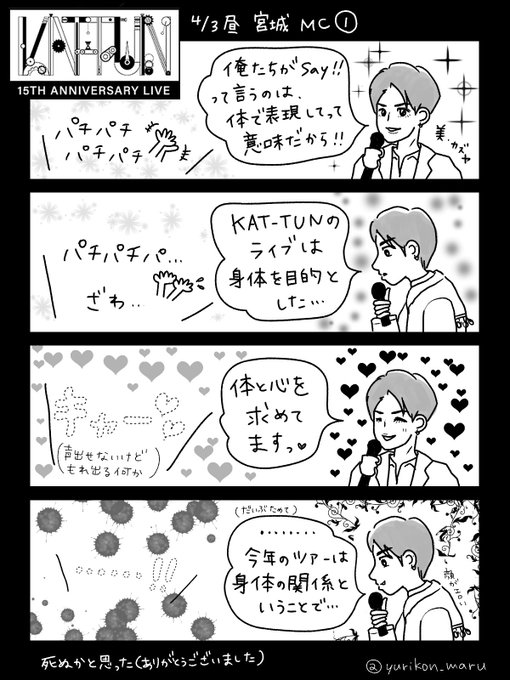 KAT-TUN
15TH ANNIVERSARY LIVE
4/3昼 宮城 MC①
俺たちがSay!!
って言うのは、
体で表現してって
意味だから!!
美・カズヤ
パチパチ
パチパチ
KAT-TUNの
ライブは
身体を目的と
した…
パチパチパ…
ざわ‥
体と心を
求めて
ますっ♥
キャー♡
(声出せないけど
もれ出る何か)
(だいぶためて)
………
今年のツアーは
身体の関係と
いうことで…
……!!
顔がエロい
死ぬかと思った(ありがとうございました)
@yurikon_maru